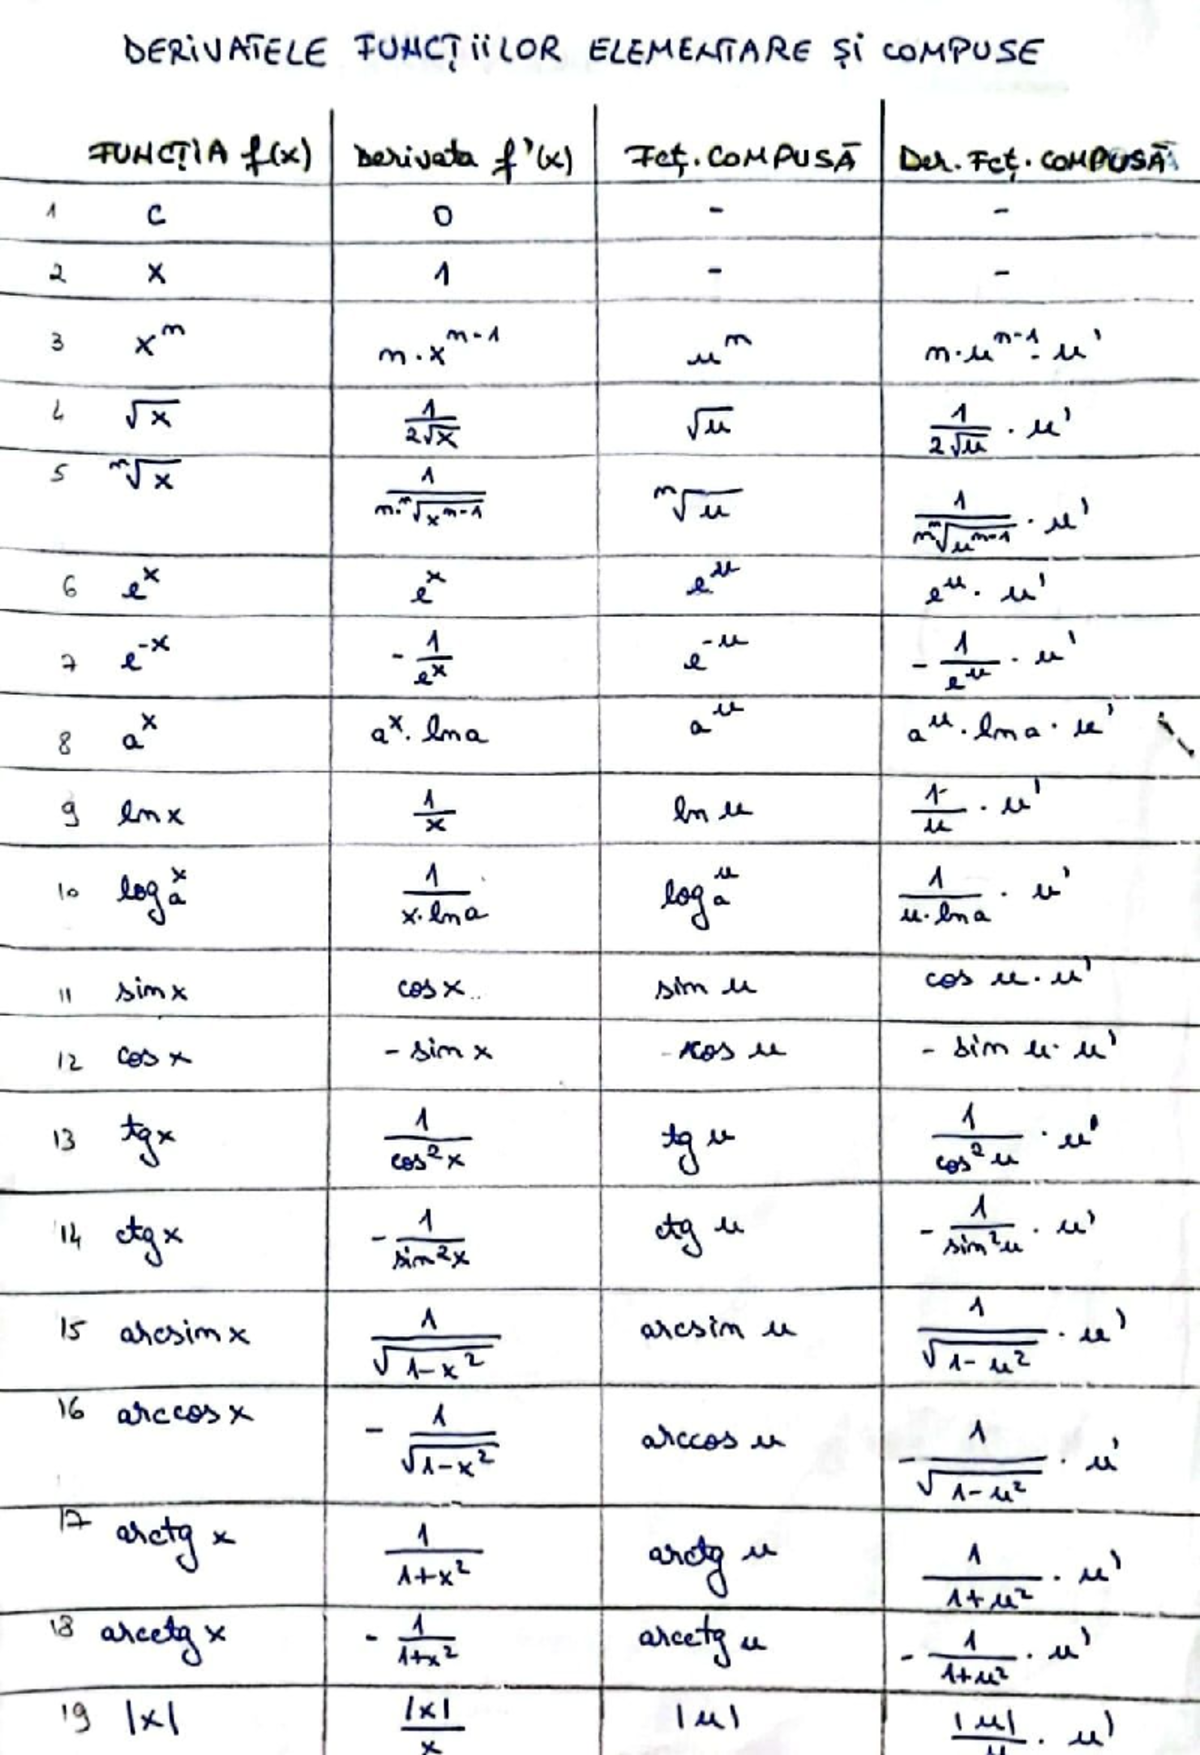 DERIVATELE FUNCȚIILOR ELEMENTARE ȘI COMPUSE
FUNCȚIA f(x) | Derivata f'(x) | Fcț. COMPUSĂ | Der. Fcț. COMPUSĂ
1 | c | 0 | - | -
2 | x | 1 | - | -
3 | x^n | n·x^(n-1) | u^n | n·u^(n-1)·u'
4 | √x | 1/(2√x) | √u | 1/(2√u) · u'
5 | ⁿ√x | 1/(n·ⁿ√(x^(n-1))) | ⁿ√u | 1/(n ⁿ√(u^(n-1))) · u'
6 | e^x | e^x | e^u | e^u · u'
7 | e^(-x) | - 1/e^x | e^(-u) | - 1/e^u · u'
8 | a^x | a^x · ln a | a^u | a^u · ln a · u'
9 | ln x | 1/x | ln u | 1/u · u'
10 | log_a x | 1/(x·ln a) | log_a u | 1/(u·ln a) · u'
11 | sin x | cos x | sin u | cos u · u'
12 | cos x | - sin x | cos u | - sin u · u'
13 | tg x | 1/cos²x | tg u | 1/cos²u · u'
14 | ctg x | - 1/sin²x | ctg u | - 1/sin²u · u'
15 | arcsin x | 1/√(1-x²) | arcsin u | 1/√(1-u²) · u'
16 | arccos x | - 1/√(1-x²) | arccos u | - 1/√(1-u²) · u'
17 | arctg x | 1/(1+x²) | arctg u | 1/(1+u²) · u'
18 | arcctg x | - 1/(1+x²) | arcctg u | - 1/(1+u²) · u'
19 | |x| | |x|/x | |u| | |u|/u · u'